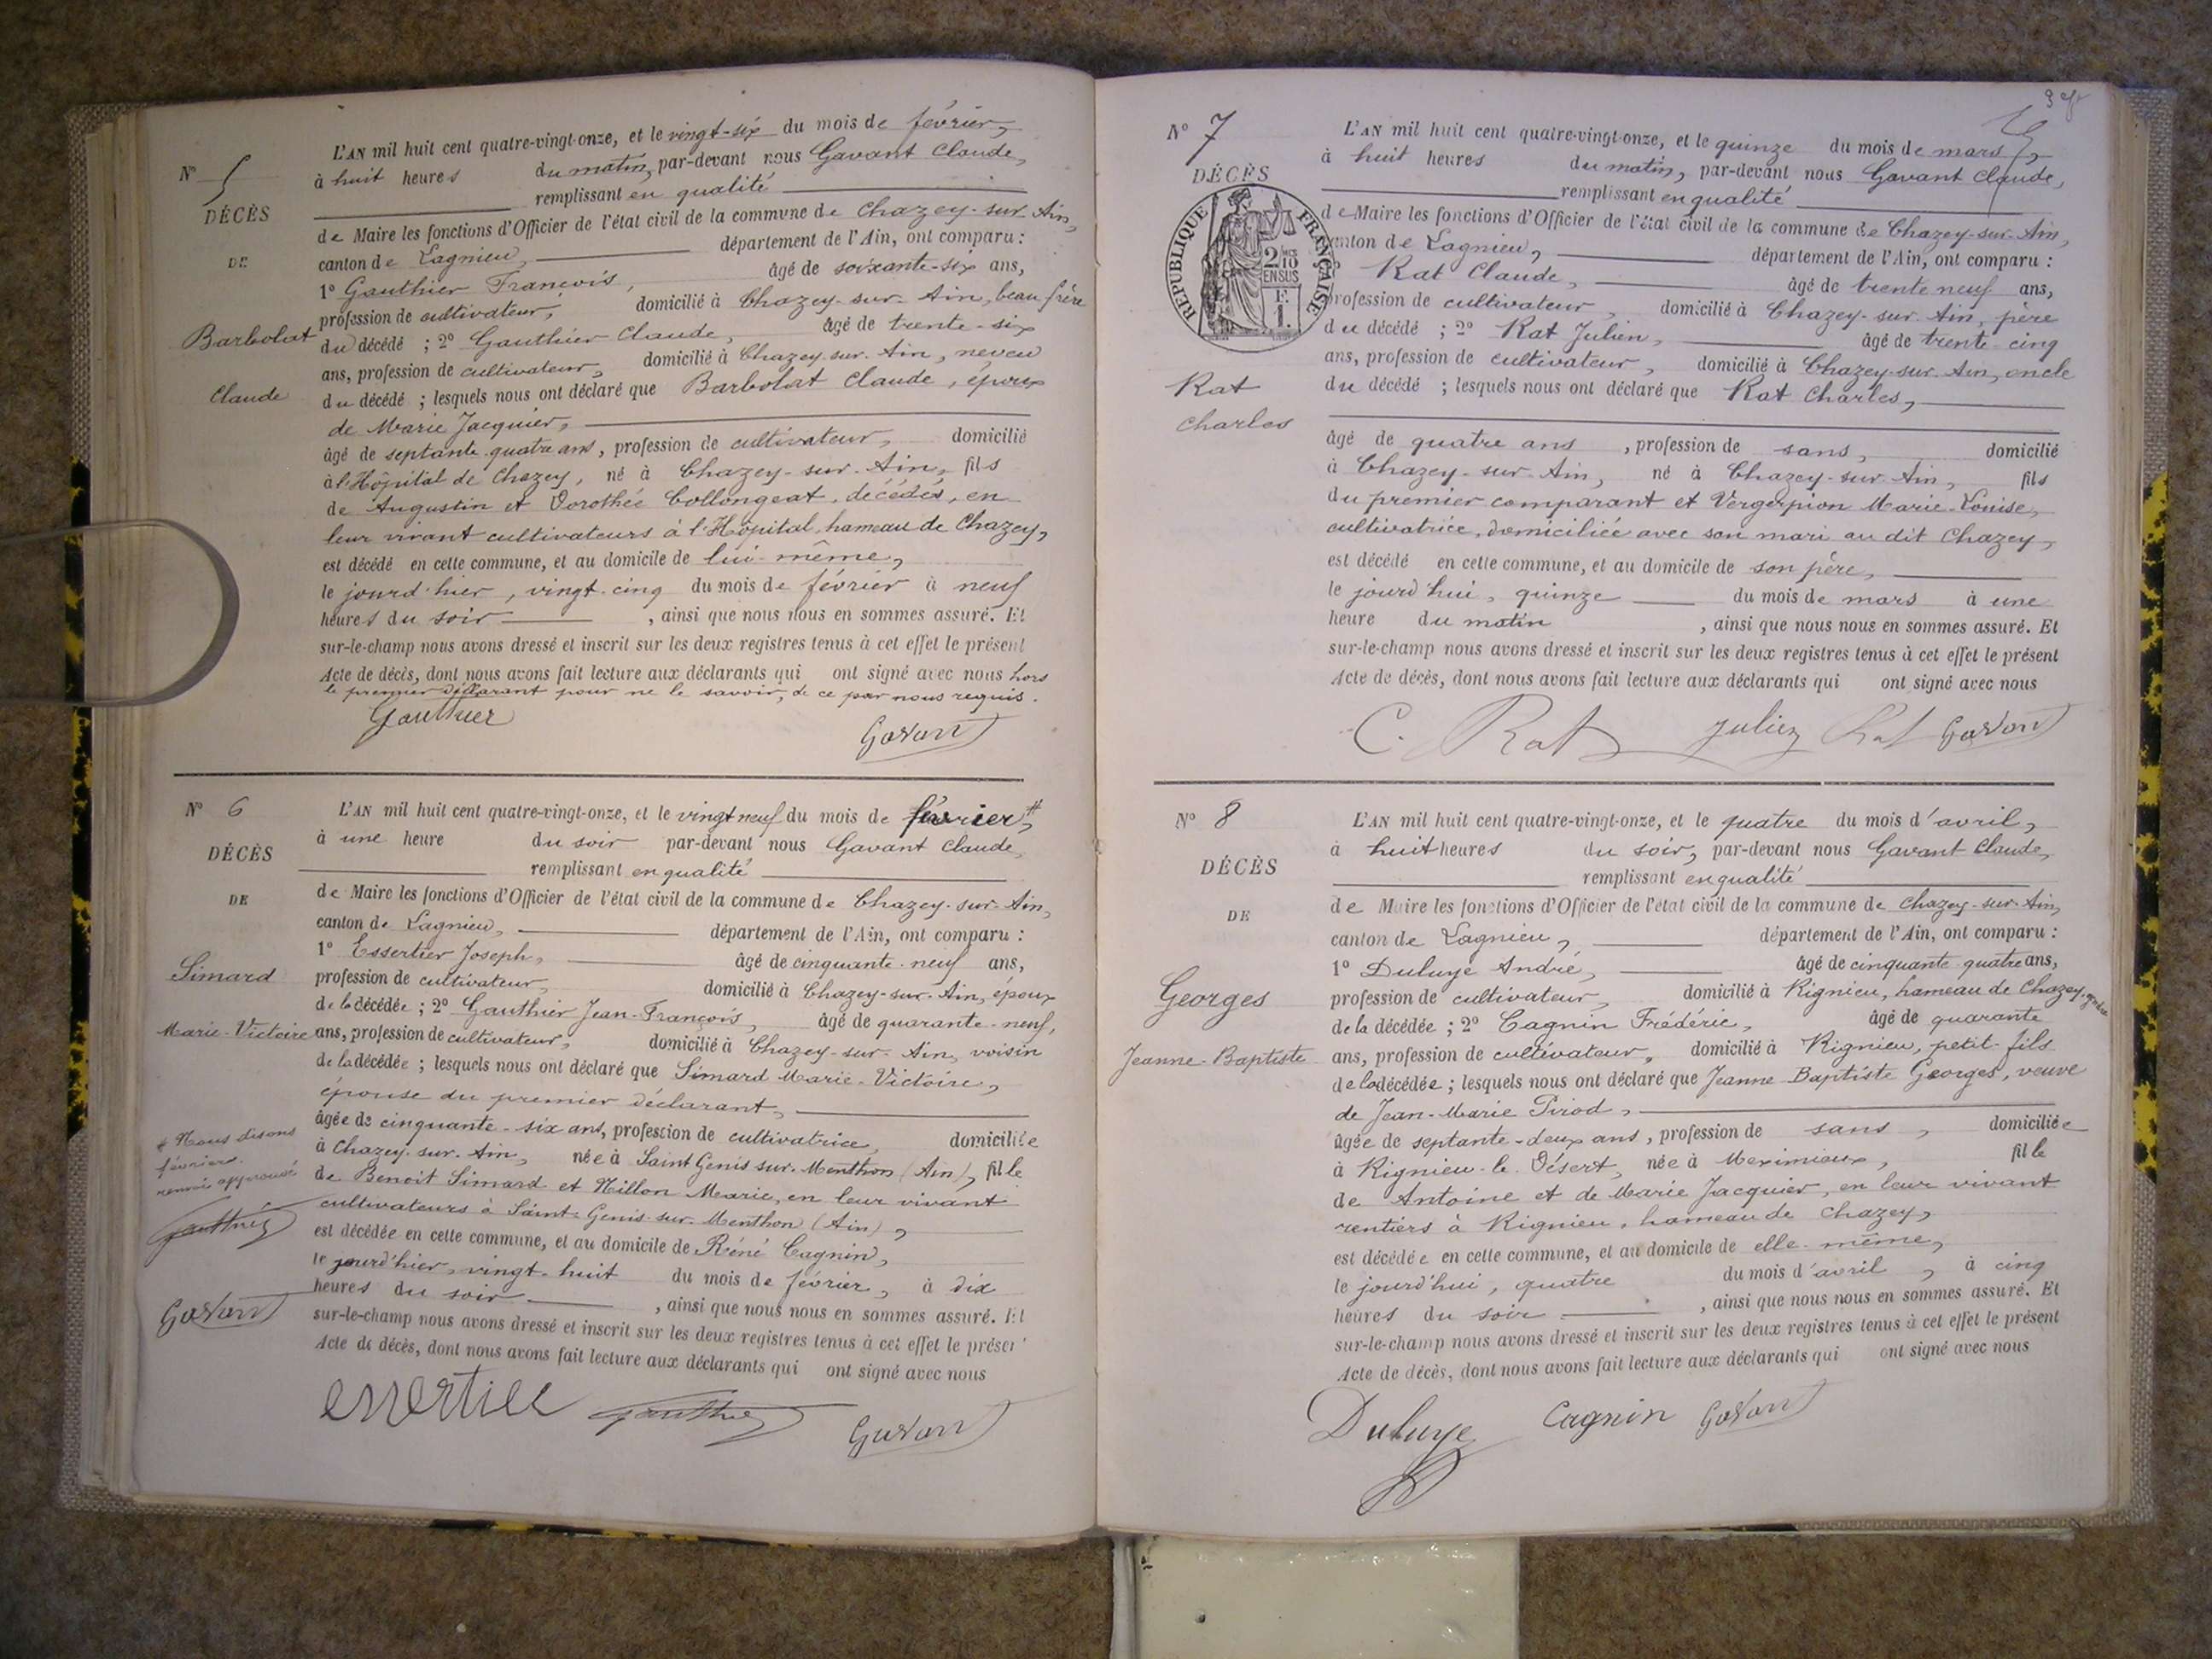 N° 5
DÉCÈS
DE
Barbolat
Claude
L'AN mil huit cent quatre-vingt-onze, et le vingt-six du mois de février,
à huit heures du matin, par-devant nous Gavant Claude,
remplissant en qualité
de Maire les fonctions d'Officier de l'état civil de la commune de Chazey-sur-Ain,
canton de Lagnieu, département de l'Ain, ont comparu :
1° Gauthier François, âgé de soixante-six ans,
profession de cultivateur, domicilié à Chazey-sur-Ain, beau frère
du décédé ; 2° Gauthier Claude, âgé de trente-six
ans, profession de cultivateur, domicilié à Chazey-sur-Ain, neveu
du décédé ; lesquels nous ont déclaré que Barbolat Claude, époux
de Marie Jacquier,
âgé de septante-quatre ans, profession de cultivateur, domicilié
à l'Hôpital de Chazey, né à Chazey-sur-Ain, fils
de Augustin et Dorothée Collongeat, décédés, en
leur vivant cultivateurs à l'Hôpital, hameau de Chazey,
est décédé en cette commune, et au domicile de lui-même,
le jourd'hier, vingt-cinq du mois de février à neuf
heures du soir, ainsi que nous nous en sommes assuré. Et
sur-le-champ nous avons dressé et inscrit sur les deux registres tenus à cet effet le présent
Acte de décès, dont nous avons fait lecture aux déclarants qui ont signé avec nous hors
le premier déclarant pour ne le savoir, de ce par nous requis.
Gauthier Gavant
N° 6
DÉCÈS
DE
Simard
Marie-Victoire
L'AN mil huit cent quatre-vingt-onze, et le vingt neuf du mois de février, #
à une heure du soir par-devant nous Gavant Claude,
remplissant en qualité
de Maire les fonctions d'Officier de l'état civil de la commune de Chazey-sur-Ain,
canton de Lagnieu, département de l'Ain, ont comparu :
1° Essertier Joseph, âgé de cinquante-neuf ans,
profession de cultivateur, domicilié à Chazey-sur-Ain, époux
de la décédée ; 2° Gauthier Jean-François, âgé de quarante-neuf,
ans, profession de cultivateur, domicilié à Chazey-sur-Ain, voisin
de la décédée ; lesquels nous ont déclaré que Simard Marie-Victoire,
épouse du premier déclarant,
âgée de cinquante-six ans, profession de cultivatrice, domiciliée
à Chazey-sur-Ain, née à Saint Genis sur Menthon (Ain), fille
de Benoit Simard et Nillon Marie, en leur vivant
cultivateurs à Saint-Genis-sur-Menthon (Ain),
est décédée en cette commune, et au domicile de Réné Cagnin,
le jourd'hier, vingt-huit du mois de février, à dix
heures du soir, ainsi que nous nous en sommes assuré. Et
sur-le-champ nous avons dressé et inscrit sur les deux registres tenus à cet effet le présent
Acte de décès, dont nous avons fait lecture aux déclarants qui ont signé avec nous
# Nous disons
février.
renvoi approuvé
Gauthier
Gavant
essertier Gauthier Gavant
N° 7
DÉCÈS
RÉPUBLIQUE FRANÇAISE
2/10 EN SUS
F. 1.
Rat
Charles
L'AN mil huit cent quatre-vingt-onze, et le quinze du mois de mars,
à huit heures du matin, par-devant nous Gavant Claude,
remplissant en qualité
de Maire les fonctions d'Officier de l'état civil de la commune de Chazey-sur-Ain,
canton de Lagnieu, département de l'Ain, ont comparu :
Rat Claude, âgé de trente neuf ans,
profession de cultivateur, domicilié à Chazey-sur-Ain, père
du décédé ; 2° Rat Julien, âgé de trente-cinq
ans, profession de cultivateur, domicilié à Chazey-sur-Ain, oncle
du décédé ; lesquels nous ont déclaré que Rat Charles,
âgé de quatre ans, profession de sans, domicilié
à Chazey-sur-Ain, né à Chazey-sur-Ain, fils
du premier comparant et Vergerpion Marie-Louise,
cultivatrice, domiciliée avec son mari au dit Chazey,
est décédé en cette commune, et au domicile de son père,
le jourd'hui, quinze du mois de mars à une
heure du matin, ainsi que nous nous en sommes assuré. Et
sur-le-champ nous avons dressé et inscrit sur les deux registres tenus à cet effet le présent
Acte de décès, dont nous avons fait lecture aux déclarants qui ont signé avec nous
C. Rat Julien Rat Gavant
N° 8
DÉCÈS
DE
Georges
Jeanne-Baptiste
L'AN mil huit cent quatre-vingt-onze, et le quatre du mois d'avril,
à huit heures du soir, par-devant nous Gavant Claude,
remplissant en qualité
de Maire les fonctions d'Officier de l'état civil de la commune de Chazey-sur-Ain,
canton de Lagnieu, département de l'Ain, ont comparu :
1° Duluye André, âgé de cinquante-quatre ans,
profession de cultivateur, domicilié à Rignieu, hameau de Chazey, gendre
de la décédée ; 2° Cagnin Frédéric, âgé de quarante
ans, profession de cultivateur, domicilié à Rignieu, petit-fils
de la décédée ; lesquels nous ont déclaré que Jeanne Baptiste Georges, veuve
de Jean-Marie Pirod,
âgée de septante-deux ans, profession de sans, domiciliée
à Rignieu-le-Désert, née à Meximieux, fille
de Antoine et de Marie Jacquier, en leur vivant
rentiers à Rignieu, hameau de Chazey,
est décédée en cette commune, et au domicile de elle-même,
le jourd'hui, quatre du mois d'avril, à cinq
heures du soir, ainsi que nous nous en sommes assuré. Et
sur-le-champ nous avons dressé et inscrit sur les deux registres tenus à cet effet le présent
Acte de décès, dont nous avons fait lecture aux déclarants qui ont signé avec nous
Duluye Cagnin Gavant